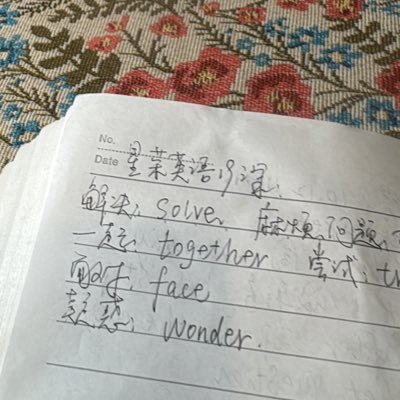 No.
Date 星荣英语 19课
解决: solve 麻烦,问题
一起: together 尝试: t
面对: face
疑惑: wonder.